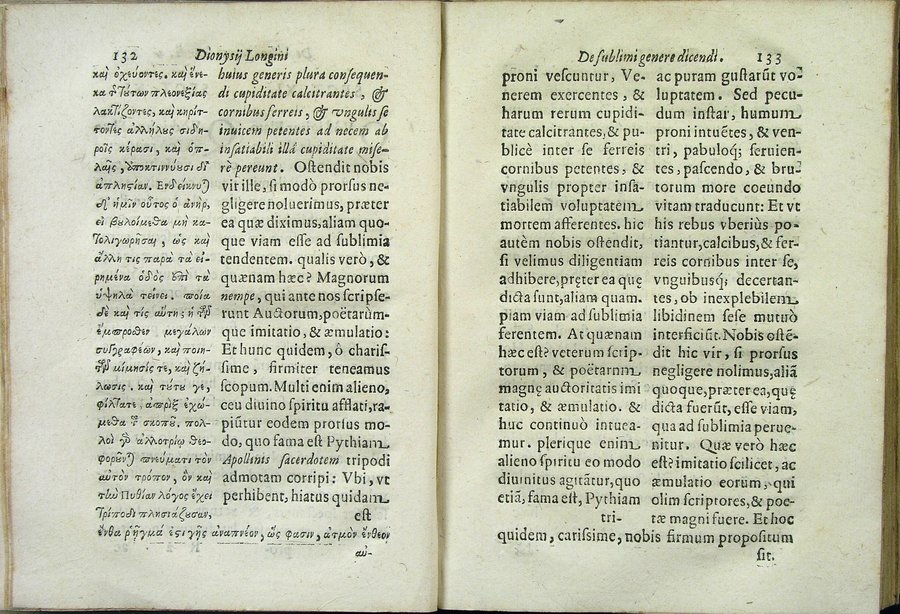 132 Dionysij Longini
καὶ ὀχεύοντες. καὶ ἕνε-
κα τ τούτων πλεονεξίας
λακτίζοντες, καὶ κηρίτ-
τοντες ἀλλήλους σιδη-
ροῖς κέρασι, καὶ ὁπ-
λαῖς, ἀποκτιννύουσι δι᾽
ἀπληστίαν. Ενδείκνυ)
δ᾽ ἡμῖν οὗτος ὁ ἀνὴρ,
εἰ βουλοίμεθα μὴ κα-
τολιγωρῆσαι, ὡς καὶ
ἄλλη τις παρὰ τὰ εἰ-
ρημένα ὁδὸς ἐπὶ τὰ
ὑψηλὰ τείνει. ποία
δὲ καὶ τίς αὕτη; ἡ τῶν
ἔμπροσθεν μεγάλων
συγγραφέων, καὶ ποιη-
τῶν μίμησίς τε, καὶ ζή-
λωσις. καὶ τούτου γε,
φίλτατε, ἀπρὶξ ἐχώ-
μεθα τ σκοποῦ. πολ-
λοὶ γὸ ἀλλοτρίῳ θεο-
φοροῦν) πνεύματι τὸν
αὐτὸν τρόπον, ὃν καὶ
τὴν Πυθίαν λόγος ἔχει
τρίποδι πλησιάζουσαν,
ἔνθα ῥῆγμά ἐστι γῆς ἀναπνέον, ὥς φασιν, ἀτμὸν ἔνθεον
αὐ-
huius generis plura consequen-
di cupiditate calcitrantes, &
cornibus ferreis, & vngulis se
inuicem petentes ad necem ab
insatiabili illâ cupiditate mise-
rè pereunt. Ostendit nobis
vir ille, si modò prorsus ne-
gligere noluerimus, præter
ea quæ diximus, aliam quo-
que viam esse ad sublimia
tendentem. qualis verò, &
quænam hæc? Magnorum
nempe, qui ante nos scripse-
runt Auctorum, poëtarùm-
que imitatio, & æmulatio:
Et hunc quidem, ô charis-
sime, firmiter teneamus
scopum. Multi enim alieno,
ceu diuino spiritu afflati, ra-
piūtur eodem prorsus mo-
do, quo fama est Pythiam
Apollinis sacerdotem tripodi
admotam corripi: Vbi, vt
perhibent, hiatus quidam
est
De sublimi genere dicendi. 133
proni vescuntur, Ve-
nerem exercentes, &
harum rerum cupidi-
tate calcitrantes, & pu-
blicè inter se ferreis
cornibus petentes, &
vngulis propter insa-
tiabilem voluptatem
mortem afferentes. hic
autèm nobis ostendit,
si velimus diligentiam
adhibere, pręter ea que
dicta sunt, aliam quam.
piam viam ad sublimia
ferentem. At quænam
hæc est? veterum scrip-
torum, & poëtarum
magnę auctoritatis imi
tatio, & æmulatio. &
huc continuò intuea-
mur. plerique enim
alieno spiritu eo modo
diuinitus agitātur, quo
etiā, fama est, Pythiam
tri-
ac puram gustarūt vo-
luptatem. Sed pecu-
dum instar, humum
proni intuētes, & ven-
tri, pabuloq; seruien-
tes, pascendo, & bru-
torum more coeundo
vitam traducunt: Et vt
his rebus vberiùs po-
tiantur, calcibus, & fer-
reis cornibus inter se,
vnguibusq; decertan-
tes, ob inexplebilem
libidinem sese mutuò
interficiūt. Nobis ostē-
dit hic vir, si prorsus
negligere nolimus, aliā
quoque, præter ea, quę
dicta fuerūt, esse viam,
qua ad sublimia perue-
nitur. Quæ verò hæc
est? imitatio scilicet, ac
æmulatio eorum, qui
olim scriptores, & poe-
tæ magni fuere. Et hoc
quidem, carissime, nobis firmum propositum
sit.